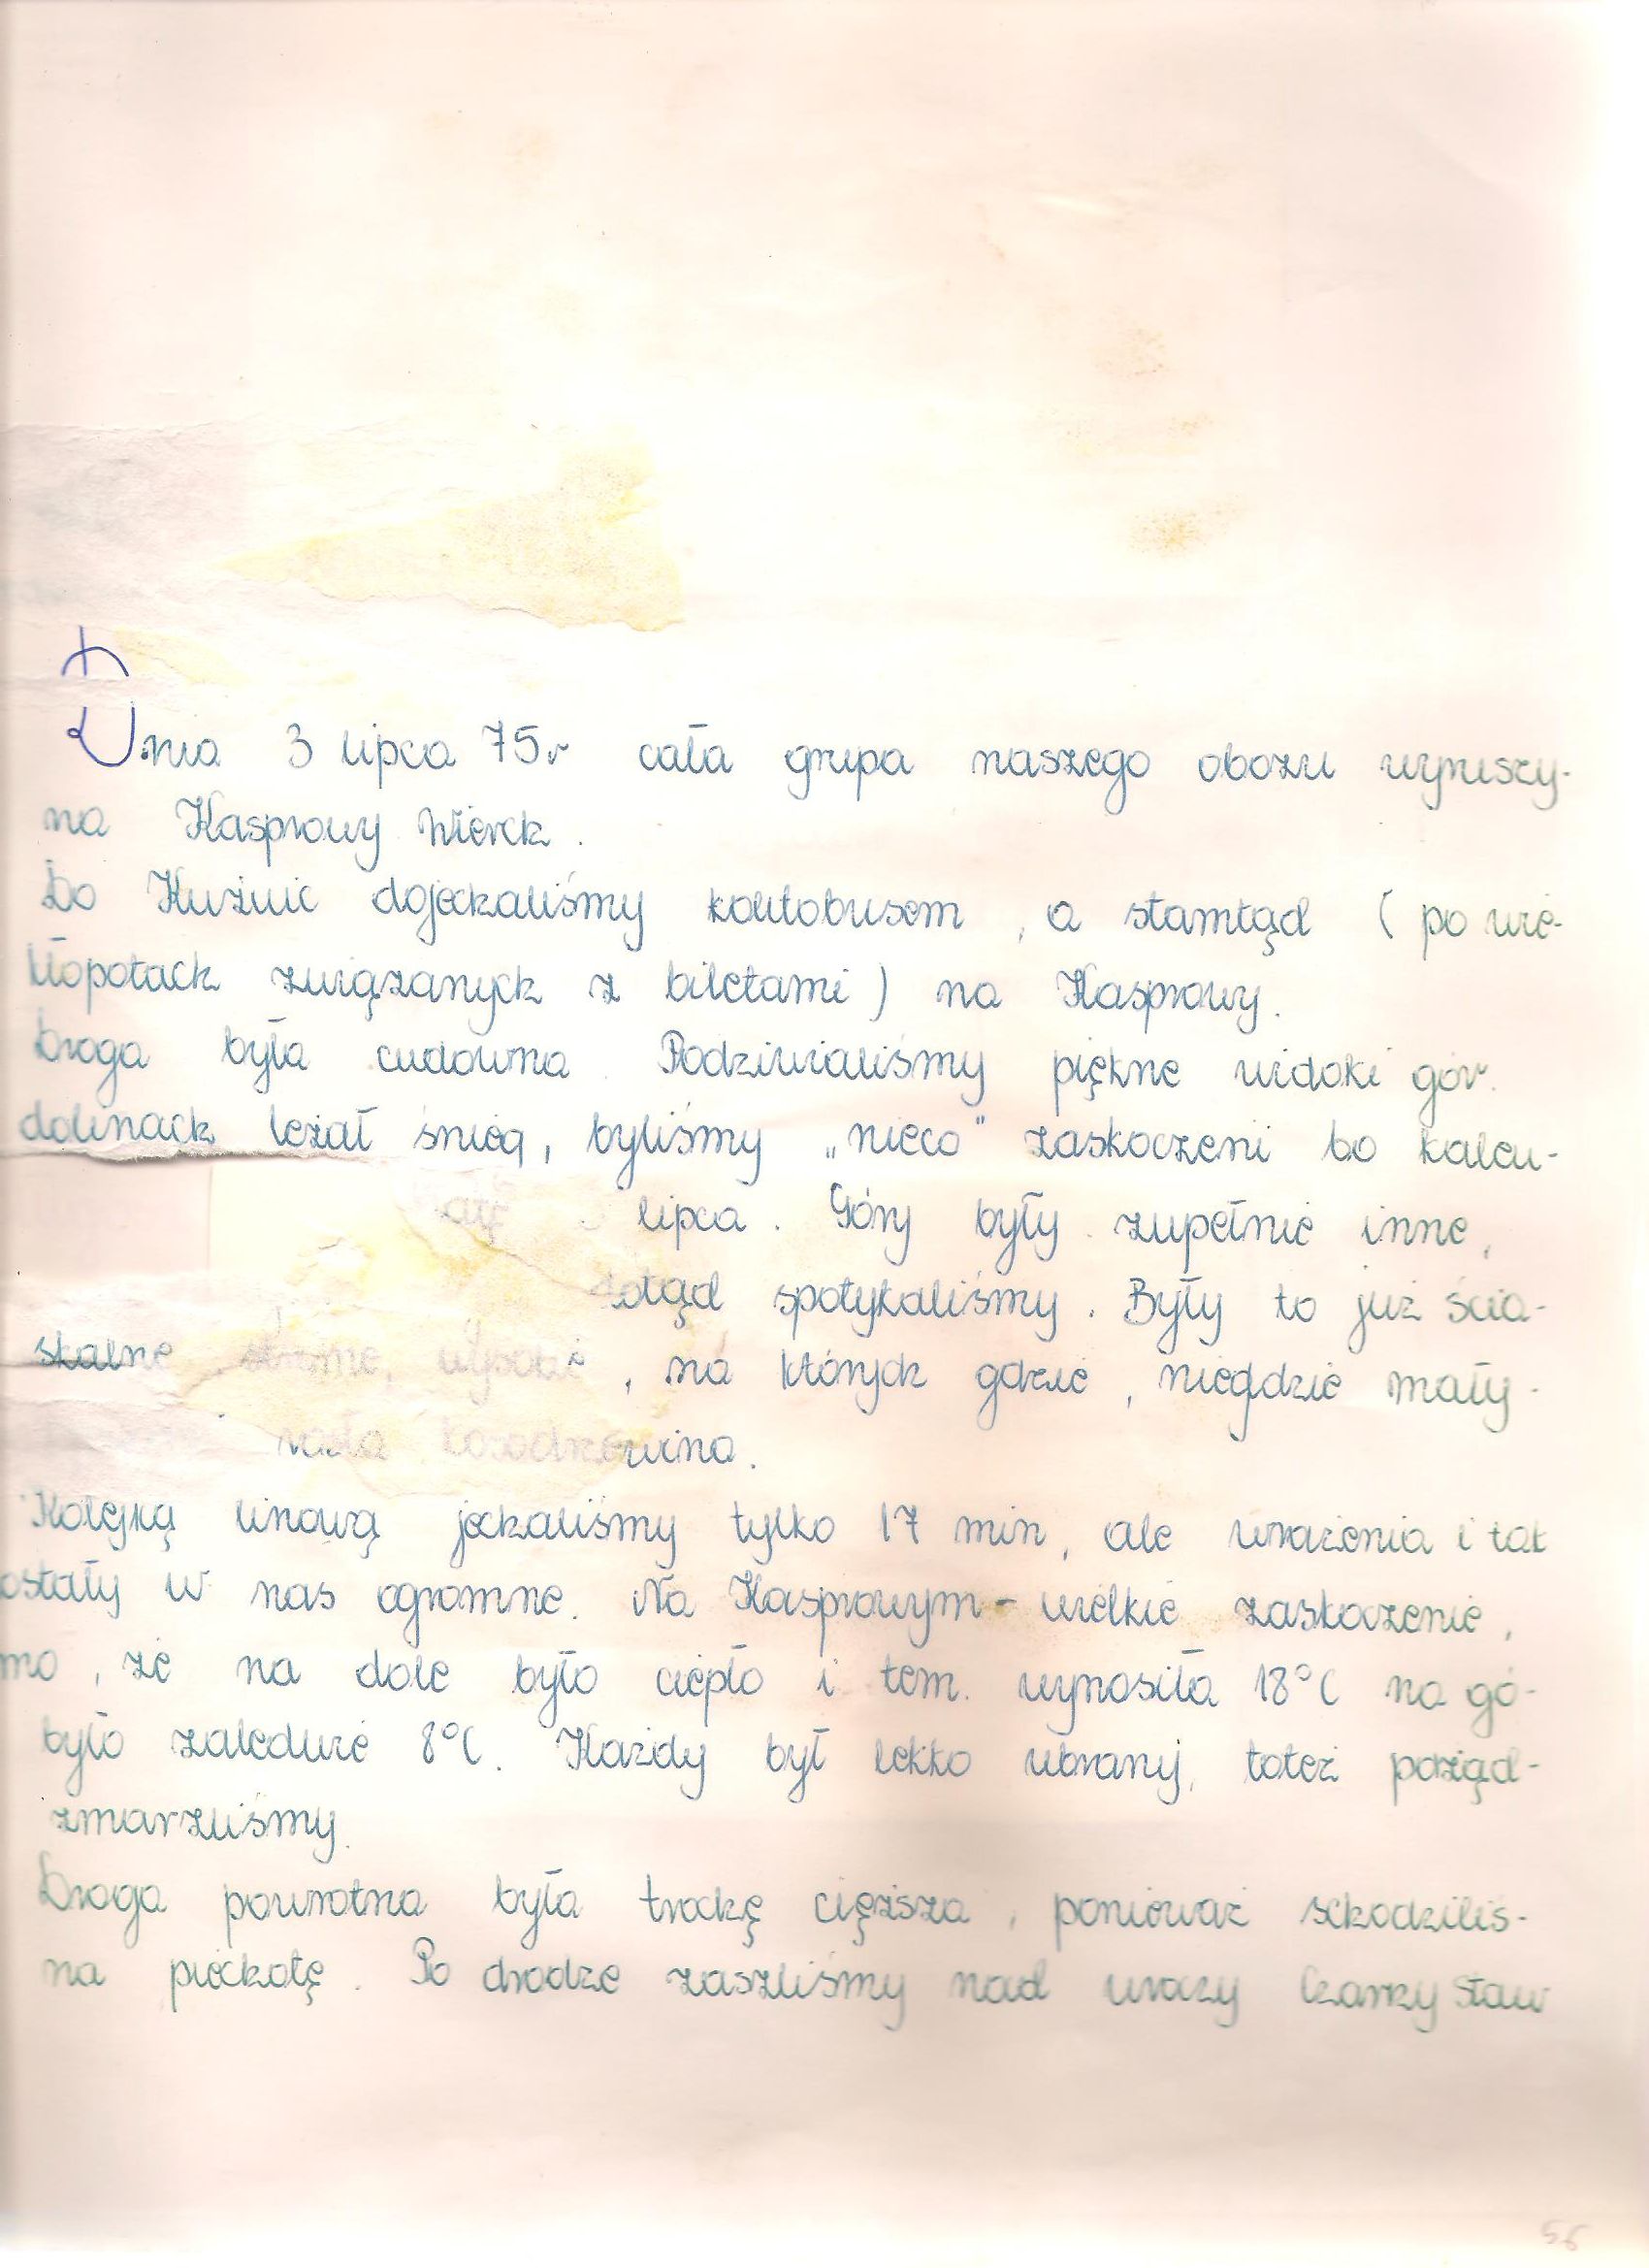 Dnia 3 lipca 75r cała grupa naszego obozu wyruszy-
na Kasprowy Wierch.
Do Kuźnic dojechaliśmy autobusem, a stamtąd (po wie-
kłopotach związanych z biletami) na Kasprowy.
Droga była cudowna. Podziwialiśmy piękne widoki gór.
dolinach leżał śnieg, byliśmy „nieco" zaskoczeni bo kalen-
lipca. Góry były zupełnie inne,
dotąd spotykaliśmy. Były to już ścia-
skalne strome, wysokie, na których gdzie, niegdzie mały-
rosła kosodrzewina.
Kolejką linową jechaliśmy tylko 17 min, ale wrażenia i tak
ostały w nas ogromne. Na Kasprowym - wielkie zaskoczenie,
mo, że na dole było ciepło i tem. wynosiła 18°C na gó-
było zaledwie 8°C. Każdy był lekko ubrany, toteż porząd-
zmarzliśmy.
Droga powrotna była trochę cięższa, ponieważ schodziliś-
na piechotę. Po drodze zaszliśmy nad uroczy Czarny Staw
56